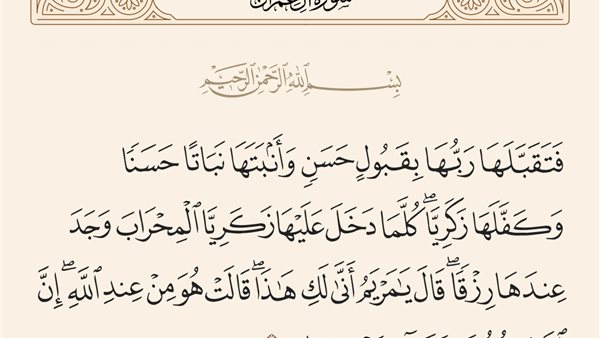 سُورَةُ آلِ عِمْرَان
بِسْمِ ٱللَّهِ ٱلرَّحْمَٰنِ ٱلرَّحِيمِ
فَتَقَبَّلَهَا رَبُّهَا بِقَبُولٍ حَسَنٍ وَأَنۢبَتَهَا نَبَاتًا حَسَنًا
وَكَفَّلَهَا زَكَرِيَّا ۖ كُلَّمَا دَخَلَ عَلَيْهَا زَكَرِيَّا ٱلْمِحْرَابَ وَجَدَ
عِندَهَا رِزْقًا ۖ قَالَ يَٰمَرْيَمُ أَنَّىٰ لَكِ هَٰذَا ۖ قَالَتْ هُوَ مِنْ عِندِ ٱللَّهِ ۖ إِنَّ